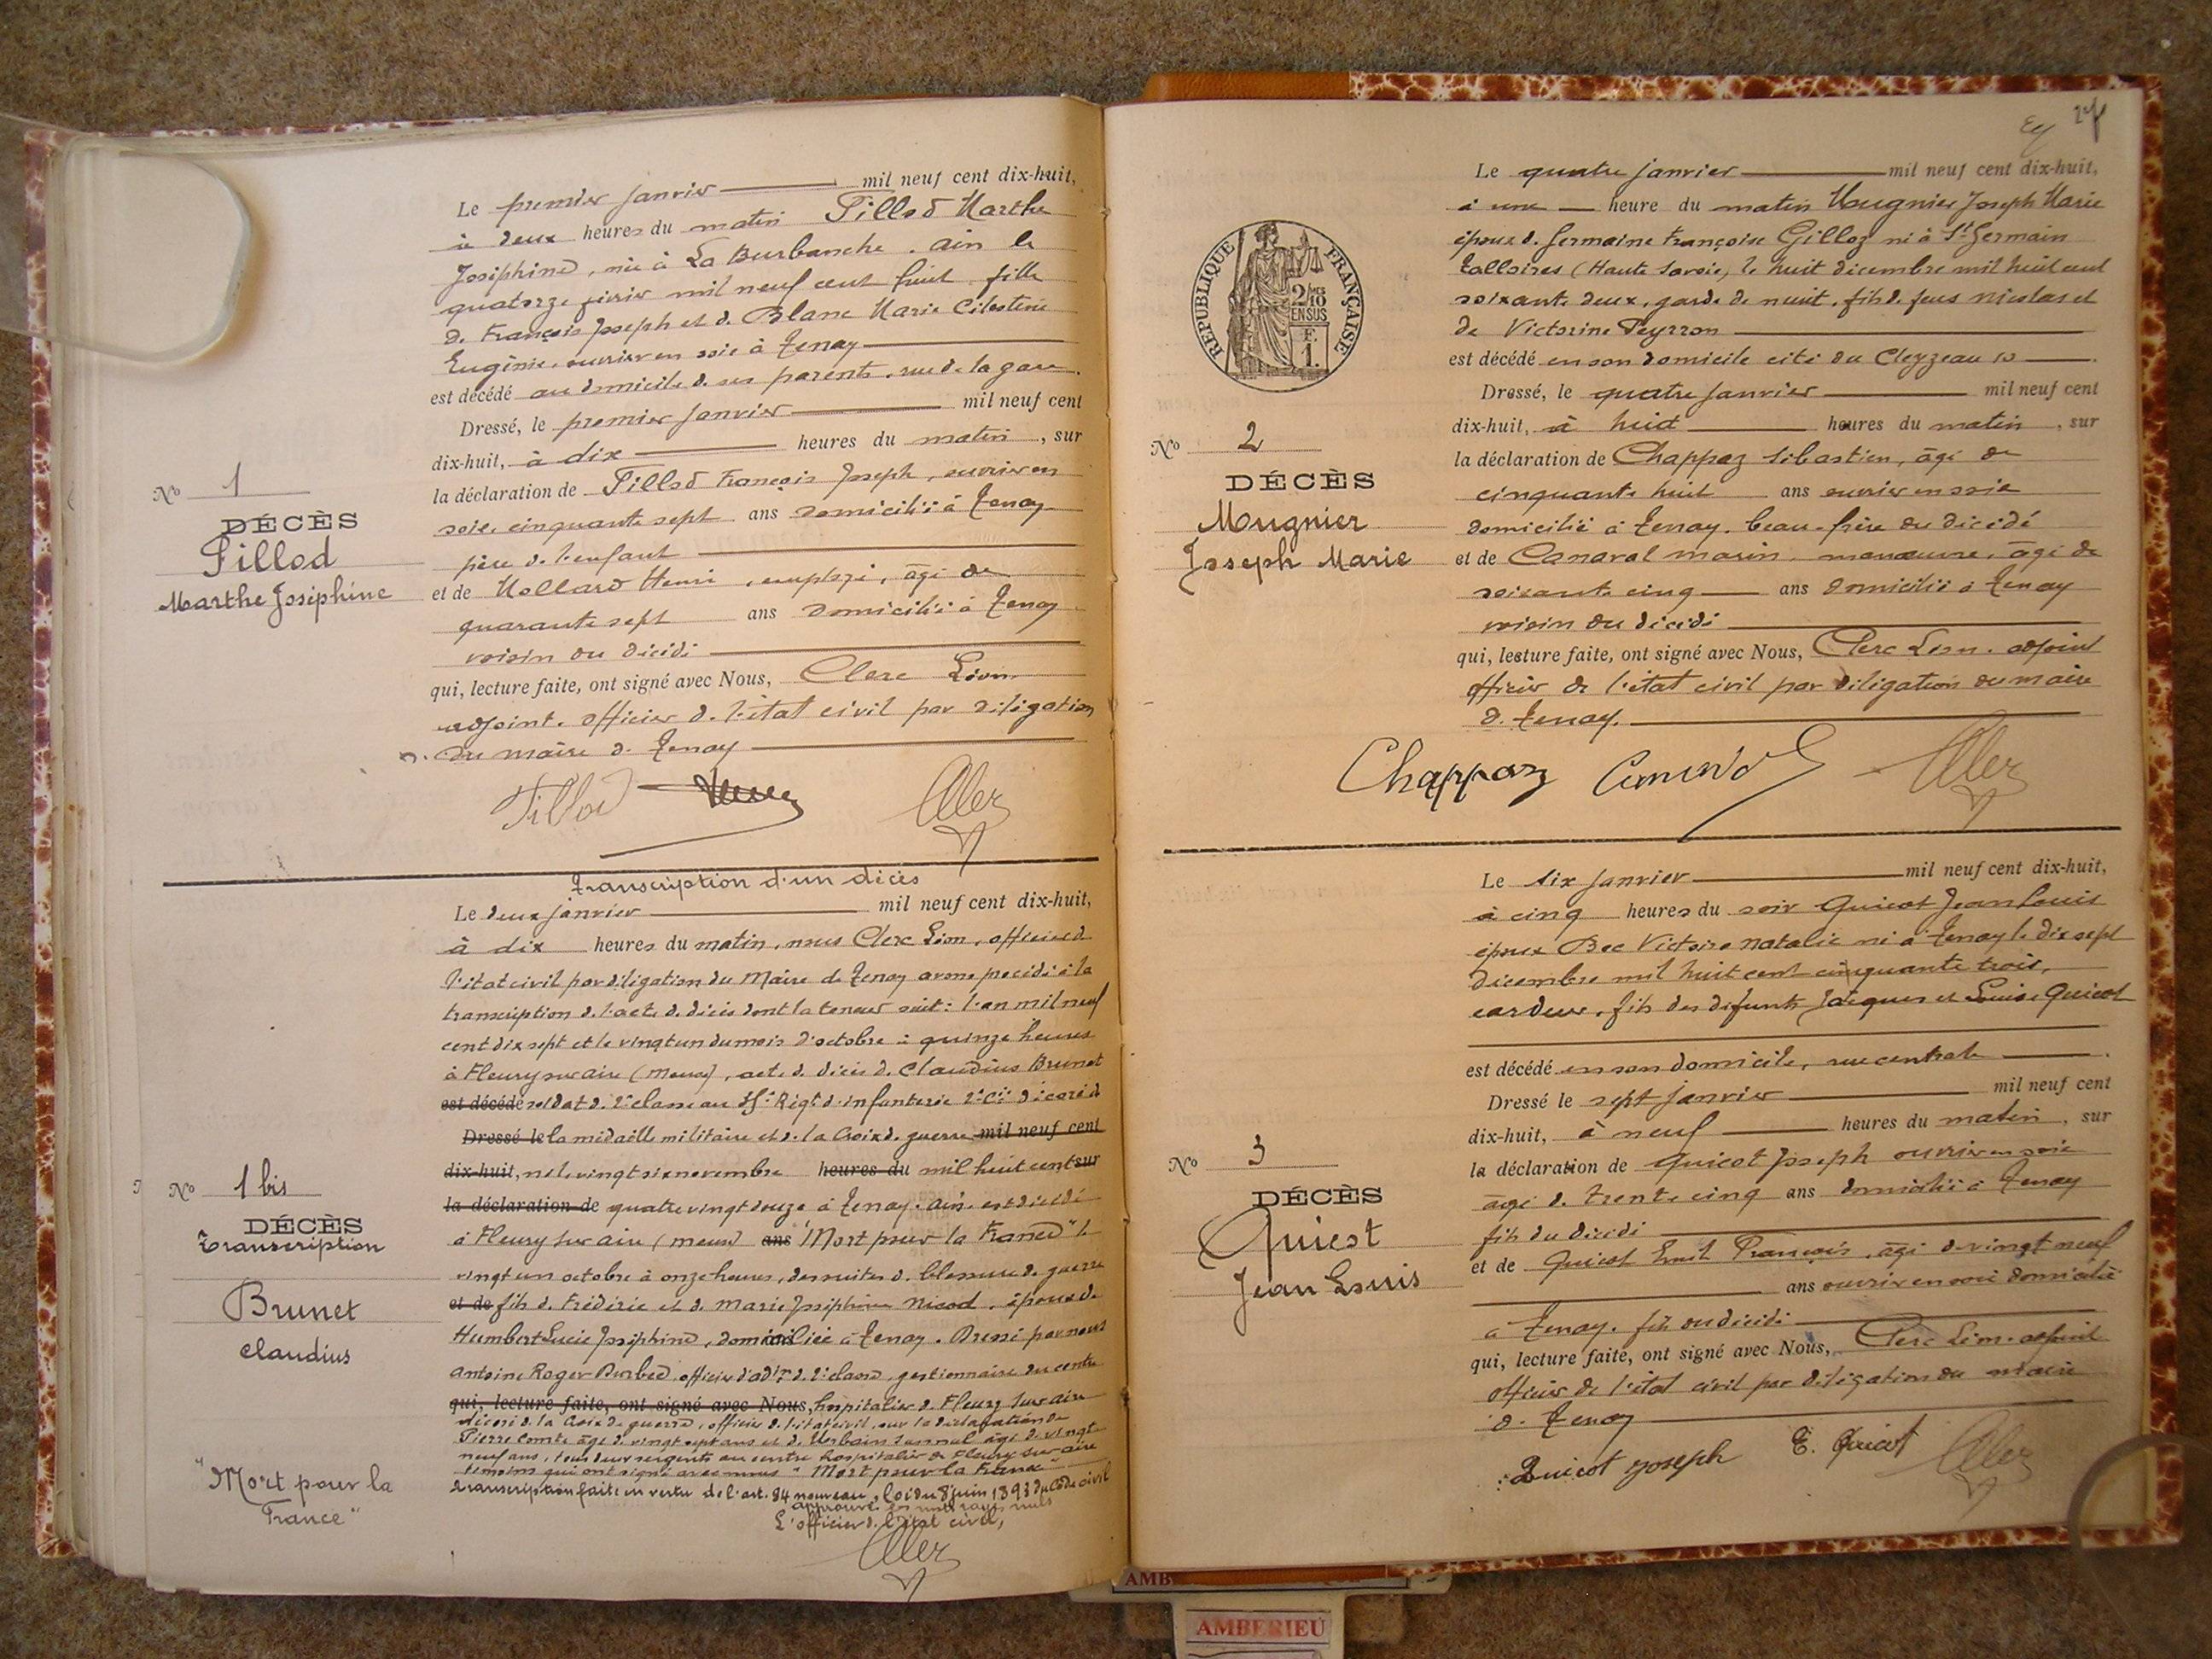 Le premier janvier mil neuf cent dix-huit,
à deux heures du matin Fillod Marthe
Joséphine, née à La Burbanche, ain le
quatorze février mil neuf cent huit, fille
de François Joseph et de Blanc Marie Célestine
Eugénie, ouvrier en soie à Tenay
est décédé au domicile de ses parents, rue de la gare.
Dressé, le premier janvier mil neuf cent
dix-huit, à dix heures du matin, sur
la déclaration de Fillod François Joseph, ouvrier en
soie, cinquante sept ans domicilié à Tenay
père de l'enfant
et de Mollard Henri, employé, âgé de
quarante sept ans domicilié à Tenay
voisin du décédé
qui, lecture faite, ont signé avec Nous, Clerc Léon
adjoint, officier de l'état civil par délégation
du maire de Tenay
Fillod
No 1
DÉCÈS
Fillod
Marthe Joséphine
Transcription d'un décès
Le deux janvier mil neuf cent dix-huit,
à dix heures du matin, nous Clerc Léon, officier de
l'état civil par délégation du Maire de Tenay avons procédé à la
transcription de l'acte de décès dont la teneur suit : l'an mil neuf
cent dix sept et le vingt un du mois d'octobre à quinze heures
à Fleury sur aire (Meuse), acte de décès de Claudius Brunet
est décédé soldat de 2e classe au Régt d'infanterie 2e Cie décoré de
Dressé le la médaille militaire et de la Croix de guerre mil neuf cent
dix-huit, né le vingt six novembre heures du mil huit cent sur
la déclaration de quatre vingt douze à Tenay. Ain. est décédé
à Fleury sur aire (meuse) ans "Mort pour la France" le
vingt un octobre à onze heures, des suites de blessure de guerre
et de fils de Frédéric et de Marie Joséphine Nicod, époux de
Humbert Lucie Joséphine, domiciliée à Tenay. Dressé par nous
Antoine Roger officier d'adon de 2e classe, gestionnaire du centre
qui, lecture faite, ont signé avec Nous, hospitalier de Fleury sur aire
décoré de la Croix de guerre, officier de l'état civil, sur la déclaration de
Pierre Comte âgé de vingt sept ans et de Urbain âgé de vingt
neuf ans, tous deux sergents au centre hospitalier de Fleury sur aire
témoins qui ont signé avec nous "Mort pour la France"
transcription faite en vertu de l'art. 94 nouveau, loi du 8 juin 1893 du Code civil
approuvé mots rayés nuls
L'officier de l'état civil,
No 1 bis
DÉCÈS
Transcription
Brunet
Claudius
"Mort pour la
France"
Le quatre janvier mil neuf cent dix-huit,
à une heure du matin Mugnier Joseph Marie
époux de Germaine Françoise Gilloz né à St Germain
Talloires (Haute Savoie) le huit décembre mil huit cent
soixante deux, garde de nuit, fils de feus Nicolas et
de Victorine Peyrron
est décédé en son domicile cité du Cleyzeau 10.
Dressé, le quatre janvier mil neuf cent
dix-huit, à huit heures du matin, sur
la déclaration de Chappaz Sébastien, âgé de
cinquante huit ans ouvrier en soie
domicilié à Tenay. beau-frère du décédé
et de Canaval marin, manœuvre, âgé de
soixante cinq ans domicilié à Tenay
voisin du décédé
qui, lecture faite, ont signé avec Nous, Clerc Léon. adjoint
officier de l'état civil par délégation du maire
de Tenay.
Chappaz
RÉPUBLIQUE FRANÇAISE
2/10
EN SUS
F.
1.
No 2
DÉCÈS
Mugnier
Joseph Marie
Le six janvier mil neuf cent dix-huit,
à cinq heures du soir Quicot Jean Louis
époux Bec Victoire Natalie né à Tenay le dix sept
décembre mil huit cent cinquante trois,
cardeur, fils des défunts Jacques et Louise Quicot
est décédé en son domicile, rue centrale.
Dressé le sept janvier mil neuf cent
dix-huit, à neuf heures du matin, sur
la déclaration de Quicot Joseph ouvrier en soie
âgé de trente cinq ans domicilié à Tenay
fils du décédé
et de Quicot Emile François, âgé de vingt neuf
ans ouvrier en soie domicilié
à Tenay. fils du décédé
qui, lecture faite, ont signé avec Nous, Clerc Léon. adjoint
officier de l'état civil par délégation du maire
de Tenay
Quicot Joseph E. Quicot
No 3
DÉCÈS
Quicot
Jean Louis
AMB
AMBERIEU